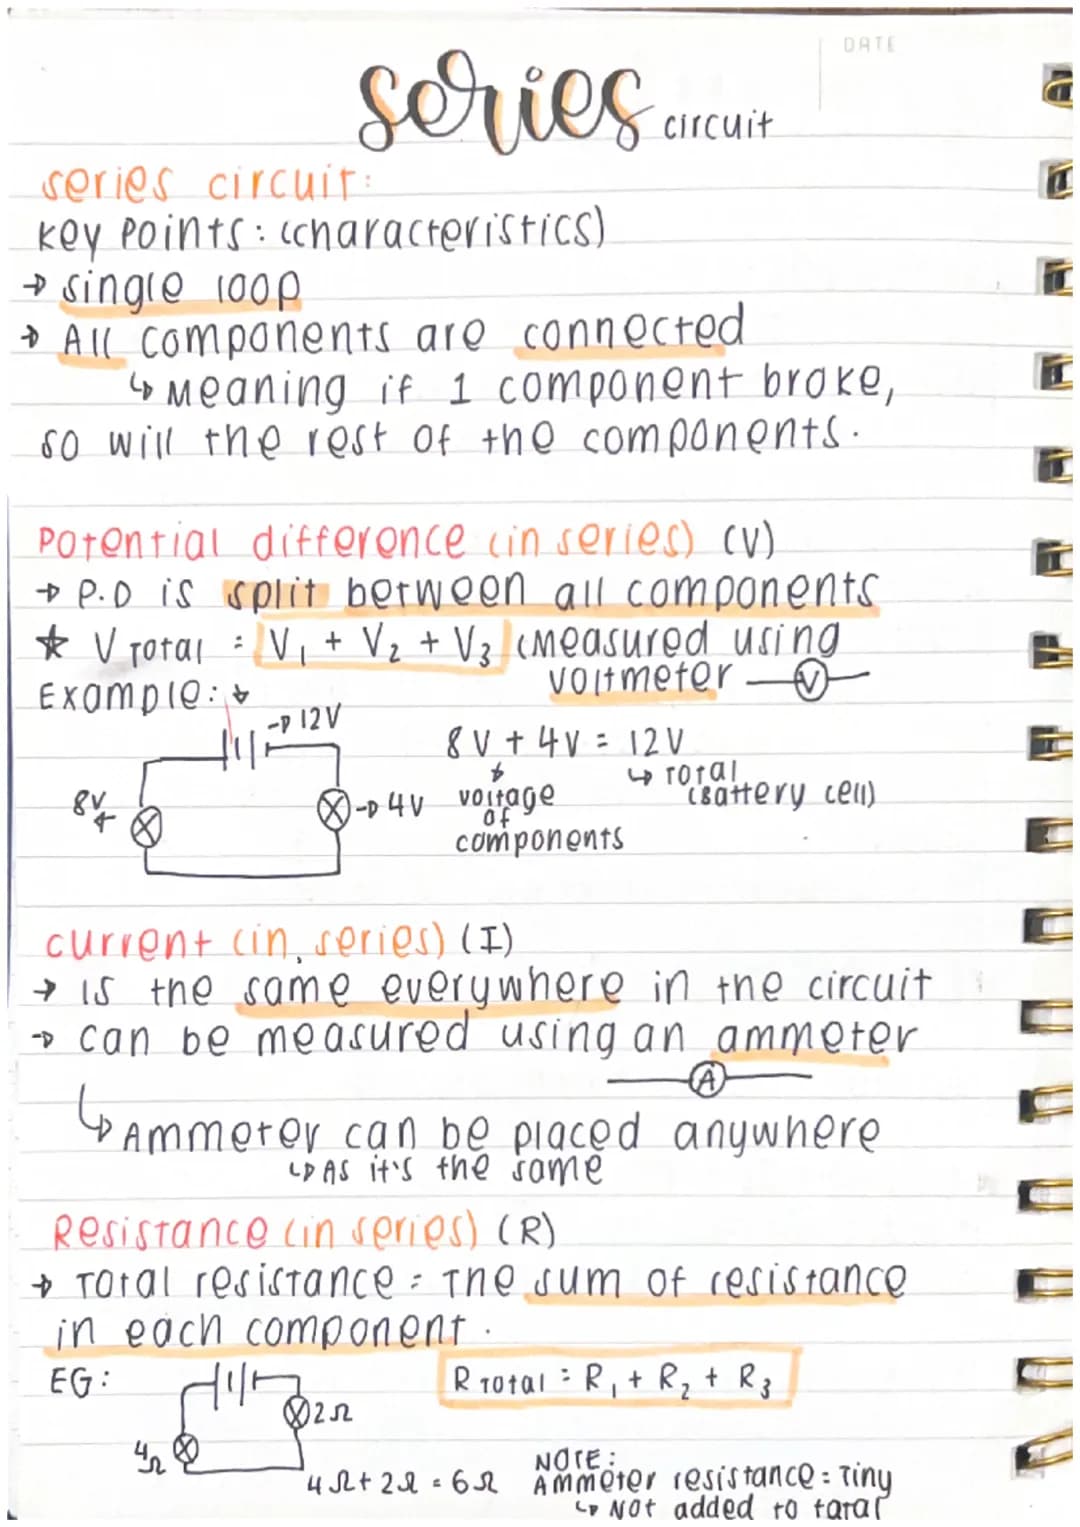 DATE
series circuit
series circuit:
key points: (characteristics)
→ single loop
→ All components are connected
↳ Meaning if 1 component broke,
so will the rest of the components.
Potential difference (in series) (V)
→ P.D is split between all components
★ V Total = V₁ + V₂ + V₃ (Measured using
voltmeter V
Example: ↓
→ 12V
8V
→ 4V
8V + 4V = 12V
↓ voltage
of
components
↳ Total
(Battery cell)
current (in series) (I)
→ is the same everywhere in the circuit
→ can be measured using an ammeter
A
↳ Ammeter can be placed anywhere
↳ As it's the same
Resistance (in series) (R)
→ Total resistance = The sum of resistance
in each component.
EG:
R Total = R₁ + R₂ + R₃
2Ω
4Ω
4Ω + 2Ω = 6Ω
NOTE:
Ammeter resistance = Tiny
↳ Not added to total